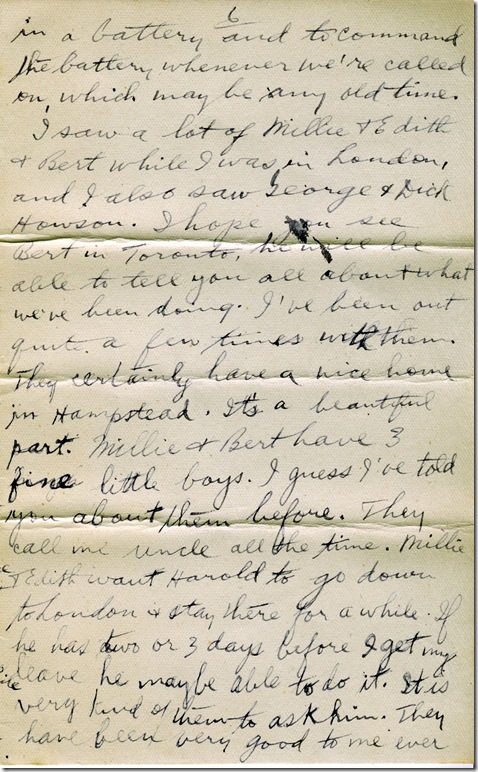 6
in a battery and to command
the battery whenever we're called
on, which may be any old time.
I saw a lot of Millie & Edith
& Bert while I was in London,
and I also saw George & Dick
Howson. I hope you see
Bert in Toronto, he will be
able to tell you all about what
we've been doing. I've been out
quite a few times with them.
They certainly have a nice home
in Hampstead. It's a beautiful
part. Millie & Bert have 3
fine little boys. I guess I've told
you about them before. They
call me uncle all the time. Millie
& Edith want Harold to go down
to London & stay there for a while. If
he has two or 3 days before I get my
leave he may be able to do it. It is
very kind of them to ask him. They
have been very good to me ever